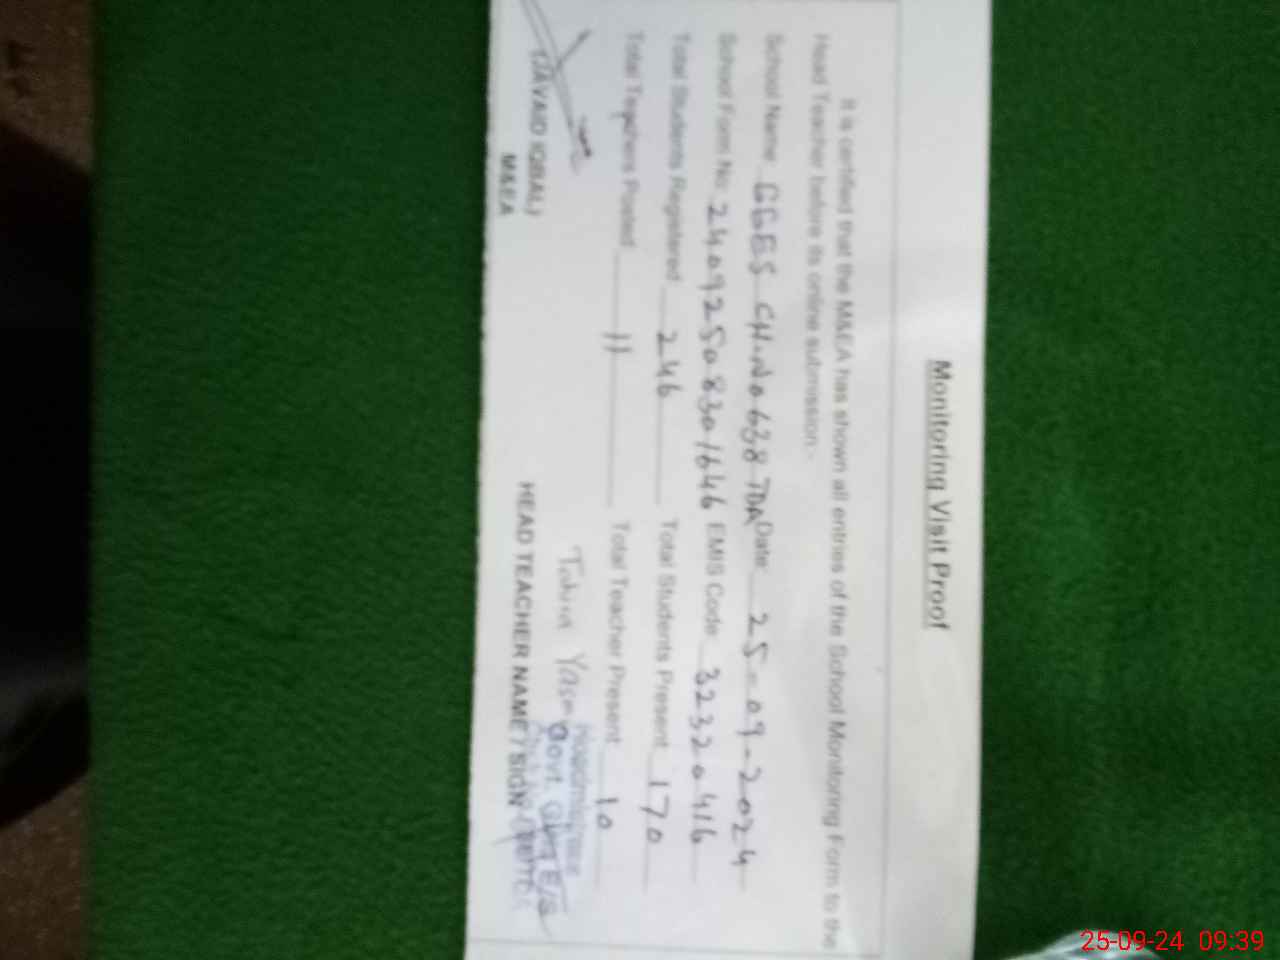 Monitoring Visit Proof
It is certified that the M&EA has shown all entries of the School Monitoring Form to the
Head Teacher before its online submission:-
School Name GGES CH.No 638 TDA Date: 25-09-2024
School Form No: 24092508301646 EMIS Code 32320416
Total Students Registered 246 Total Students Present 170
Total Teachers Posted 11 Total Teacher Present 10
Headmistress
Govt. E/S
(JAVAID IQBAL)
M&EA
HEAD TEACHER NAME / SIGN
25-09-24 09:39